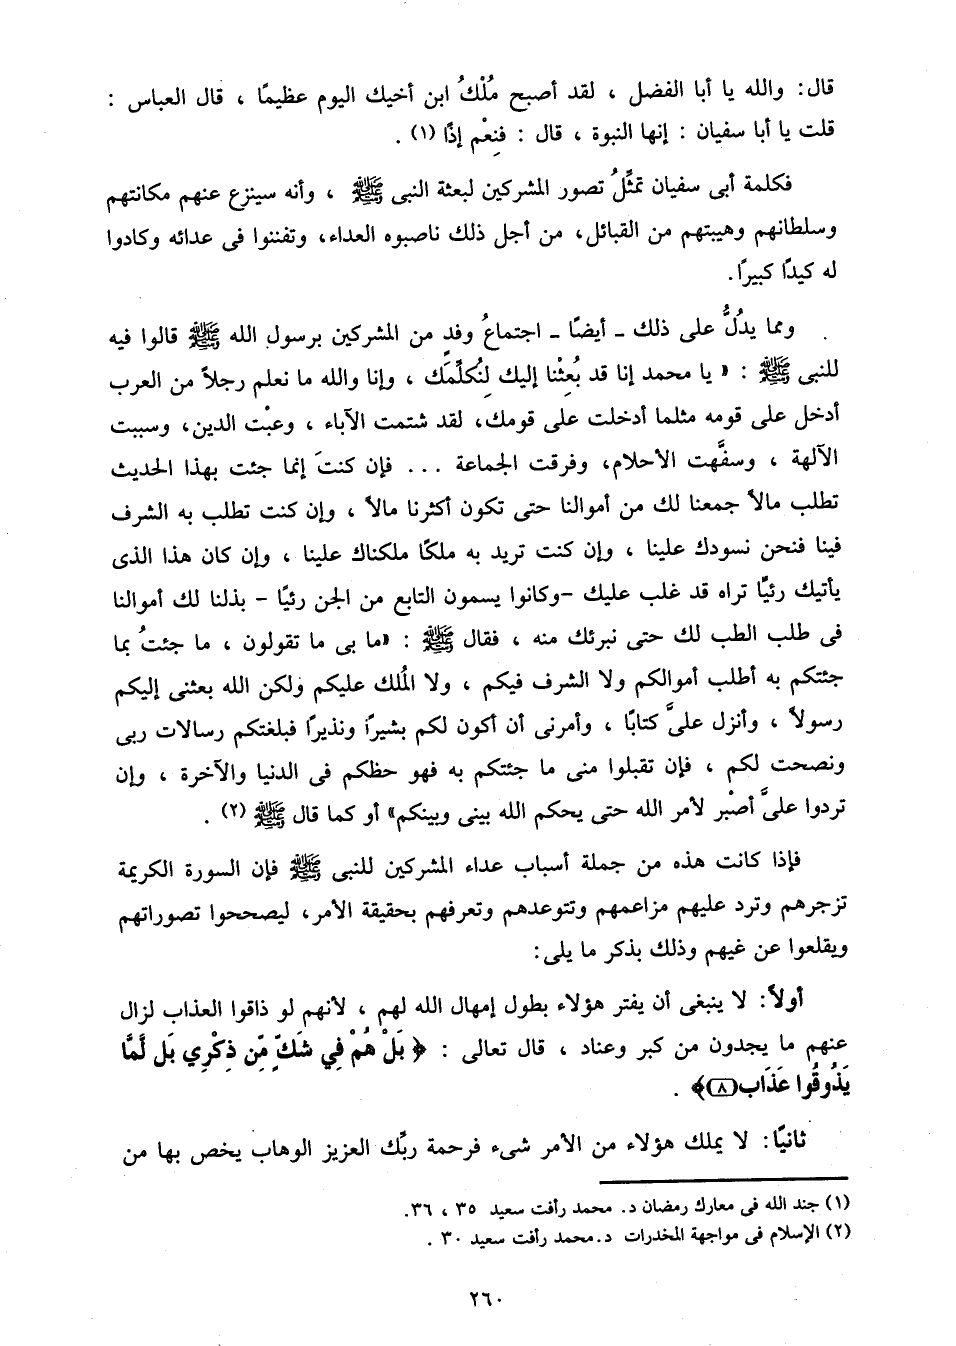 قال: والله يا أبا الفضل ، لقد أصبح مُلْكُ ابن أخيك اليوم عظيمًا ، قال العباس :
قلت يا أبا سفيان : إنها النبوة ، قال : فنِعْم إذًا (١) .
فكلمة أبى سفيان تمثِّلُ تصور المشركين لبعثة النبى ﷺ ، وأنه سينزع عنهم مكانتهم
وسلطانهم وهيبتهم من القبائل، من أجل ذلك ناصبوه العداء، وتفننوا فى عدائه وكادوا
له كيدًا كبيرًا.
ومما يدُلُّ على ذلك ـ أيضًا ـ اجتماعُ وفدٍ من المشركين برسول الله ﷺ قالوا فيه
للنبى ﷺ : « يا محمد إنا قد بُعِثْنا إليك لنُكلِّمَك ، وإنا والله ما نعلم رجلاً من العرب
أدخل على قومه مثلما أدخلت على قومك، لقد شتمت الآباء ، وعبْت الدين، وسببت
الآلهة ، وسفَّهت الأحلام، وفرقت الجماعة ... فإن كنتَ إنما جئت بهذا الحديث
تطلب مالاً جمعنا لك من أموالنا حتى تكون أكثرنا مالاً ، وإن كنت تطلب به الشرف
فينا فنحن نسودك علينا ، وإن كنت تريد به ملكًا ملكناك علينا ، وإن كان هذا الذى
يأتيك رئيًّا تراه قد غلب عليك -وكانوا يسمون التابع من الجن رئيًا - بذلنا لك أموالنا
فى طلب الطب لك حتى نبرئك منه ، فقال ﷺ : «ما بى ما تقولون ، ما جئتُ بما
جئتكم به أطلب أموالكم ولا الشرف فيكم ، ولا المُلك عليكم ولكن الله بعثنى إليكم
رسولاً ، وأنزل علىَّ كتابًا ، وأمرنى أن أكون لكم بشيرًا ونذيرًا فبلغتكم رسالات ربى
ونصحت لكم ، فإن تقبلوا منى ما جئتكم به فهو حظكم فى الدنيا والآخرة ، وإن
تردوا علىَّ أصْبر لأمر الله حتى يحكم الله بينى وبينكم» أو كما قال ﷺ (٢) .
فإذا كانت هذه من جملة أسباب عداء المشركين للنبى ﷺ فإن السورة الكريمة
تزجرهم وترد عليهم مزاعمهم وتتوعدهم وتعرفهم بحقيقة الأمر، ليصححوا تصوراتهم
ويقلعوا عن غيهم وذلك بذكر ما يلى:
أولاً: لا ينبغى أن يفتر هؤلاء بطول إمهال الله لهم ، لأنهم لو ذاقوا العذاب لزال
عنهم ما يجدون من كبر وعناد ، قال تعالى : ﴿ بَلْ هُمْ فِي شَكٍّ مِّن ذِكْرِي بَل لَّمَّا
يَذُوقُوا عَذَابِ (٨)﴾ .
ثانيًا: لا يملك هؤلاء من الأمر شىء فرحمة ربِّك العزيز الوهاب يخص بها من
(١) جند الله فى معارك رمضان د. محمد رأفت سعيد ٣٥ ، ٣٦.
(٢) الإسلام فى مواجهة المخدرات د.محمد رأفت سعيد ٣٠ .
٢٦٠